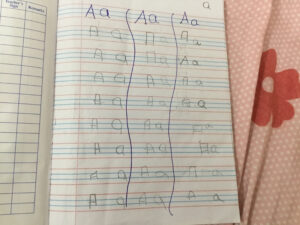 a
Remarks
Aa Aa Aa
A a A a A a
A a A a A a
A a A a A a
A a A a A a
A a A a A a
A a A a A a
A a A a A a
A a A a A a